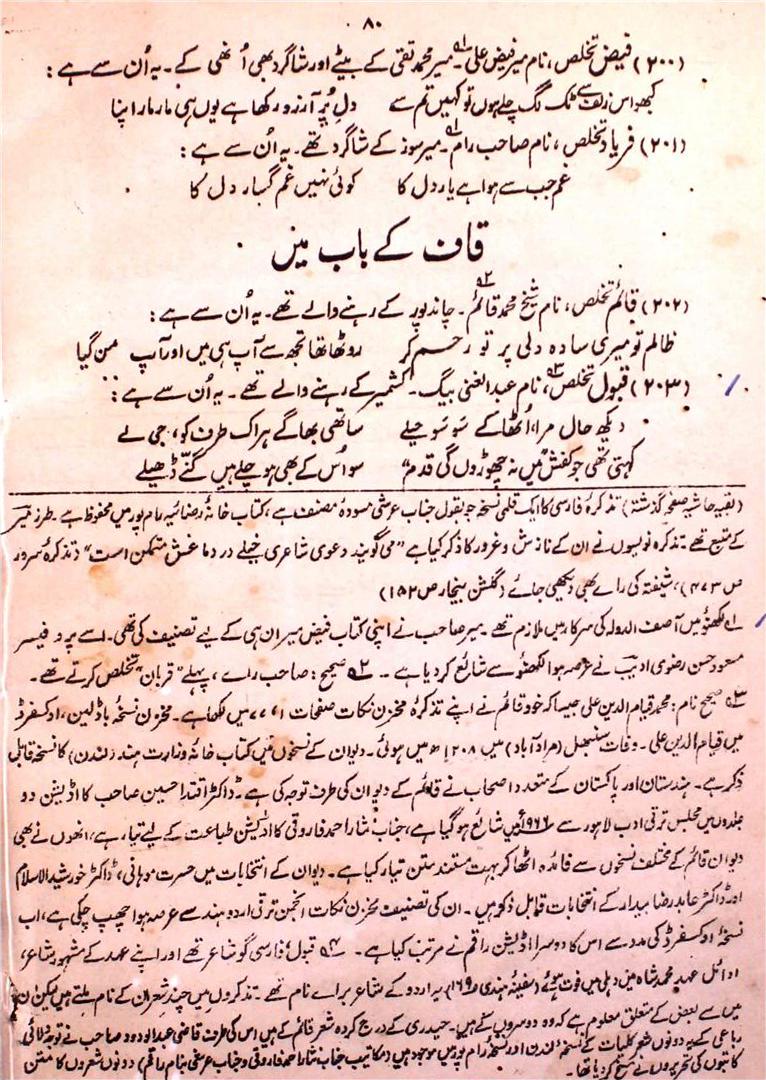 ۸۰
(۲۰۰) فیض تخلص، نام میر فیض علی۔ میر محمد تقی کے بیٹے اور شاگرد بھی اُنھی کے۔ یہ اُن سے ہے:
کبھو اس زلف سے ٹک لگ چلے ہوں تو کہیں تم سے دلِ پُر آرزو رکھا ہے یوں ہی مار مار اپنا
(۲۰۱) فریاد تخلص، نام صاحب رام۔ میر سوز کے شاگرد تھے۔ یہ اُن سے ہے:
غم جب سے ہوا ہے یار دل کا کوئی نہیں غم گسار دل کا
قاف کے باب میں
(۲۰۲) قائم تخلص، نام شیخ محمد قائم۔ چاندپور کے رہنے والے تھے۔ یہ اُن سے ہے:
ظالم تو میری سادہ دلی پر تو رحم کر روٹھا تھا تجھ سے آپ ہی میں اور آپ من گیا
(۲۰۳) قبول تخلص، نام عبدالغنی بیگ۔ کشمیر کے رہنے والے تھے۔ یہ اُن سے ہے:
دیکھ حال مرا، اُٹھا کے سَو سَو حیلے ساتھی بھاگے ہر اک طرف کو، جی لے
کہتی تھی جو کفش "میں نہ چھوڑوں گی قدم" سو اُس کے بھی ہو چلے ہیں گنّے ڈھیلے
(بقیہ حاشیہ صفحہ گذشتہ) تذکرۂ فارسی کا ایک قلمی نسخہ جو بقول جناب عرشی مسودۂ مصنف ہے، کتاب خانۂ رضائیہ رام پور میں محفوظ ہے۔ طرز میر
کے متبع تھے۔ تذکرہ نویسوں نے ان کے نازش و غرور کا ذکر کیا ہے "می گویند دعوی شاعری خیلے در دماغش متمکن است" (تذکرۂ سرور
ص ۴۷۳)، شیفتہ کی راے بھی دیکھی جائے (گلشن بیخار ص ۱۵۲)
۱؎ لکھنؤ میں آصف الدولہ کی سرکار میں ملازم تھے۔ میر صاحب نے اپنی کتاب فیض میر ان ہی کے لیے تصنیف کی تھی۔ اسے پروفیسر
مسعود حسن رضوی ادیب نے عرصہ ہوا لکھنؤ سے شائع کر دیا ہے۔ ۲؎ صحیح: صاحب راے، پہلے "قربان" تخلص کرتے تھے۔
۳؎ صحیح نام: محمد قیام الدین علی جیسا کہ خود قائم نے اپنے تذکرۂ مخزن نکات صفحات ۱، ۷۷ میں لکھا ہے۔ مخزن نسخۂ باڈلین، اوکسفرڈ
میں قیام الدین علی۔ وفات سنبھل (مراد آباد) میں ۱۲۰۸ھ میں ہوئی۔ دیوان کے نسخوں میں کتاب خانۂ وزارت ہند (لندن) کا نسخہ قابل
ذکر ہے۔ ہندستان اور پاکستان کے متعدد اصحاب نے قائم کے دیوان کی طرف توجہ کی ہے۔ ڈاکٹر اقتدا حسین صاحب کا اڈیشن دو
جلدوں میں مجلس ترقی ادب لاہور سے ۱۹۶۶ء میں شائع ہو گیا ہے، جناب نثار احمد فاروقی کا اڈیشن طباعت کے لیے تیار ہے، انھوں نے بھی
دیوان قائم کے مختلف نسخوں سے فائدہ اٹھا کر بہت مستند متن تیار کیا ہے۔ دیوان کے انتخابات میں حسرت موہانی، ڈاکٹر خورشید الاسلام
اور ڈاکٹر عابد رضا بیدار کے انتخابات قابل ذکر ہیں۔ ان کی تصنیف مخزن نکات انجمن ترقی اردو ہند سے عرصہ ہوا چھپ چکی ہے، اب
نسخۂ اوکسفرڈ کی مدد سے اس کا دوسرا اڈیشن راقم نے مرتب کیا ہے۔ ۴؎ قبول: فارسی گو شاعر تھے اور اپنے عہد کے مشہور شاعر،
اوائل عہد محمد شاہ میں دہلی میں فوت ہوئے (سفینۂ ہندی ص ۱۶۹) یہ اردو کے شاعر براے نام تھے۔ تذکروں میں چند شعر ان کے نام ملتے ہیں لیکن ان
میں سے بعض کے متعلق معلوم ہے کہ وہ دوسروں کے ہیں۔ حیدری کے درج کردہ شعر قائم کے ہیں اس کی طرف قاضی عبدالودود صاحب نے توجہ دلائی
رباعی کے یہ دونوں شعر کلیات کے نسخۂ لندن اور نسخۂ رام پور میں موجود ہیں (مکاتیب جناب نثار احمد فاروقی و جناب عرشی بنام راقم) دونوں شعروں کا متن
کاتبوں کی تحریروں نے مسخ کر دیا تھا۔